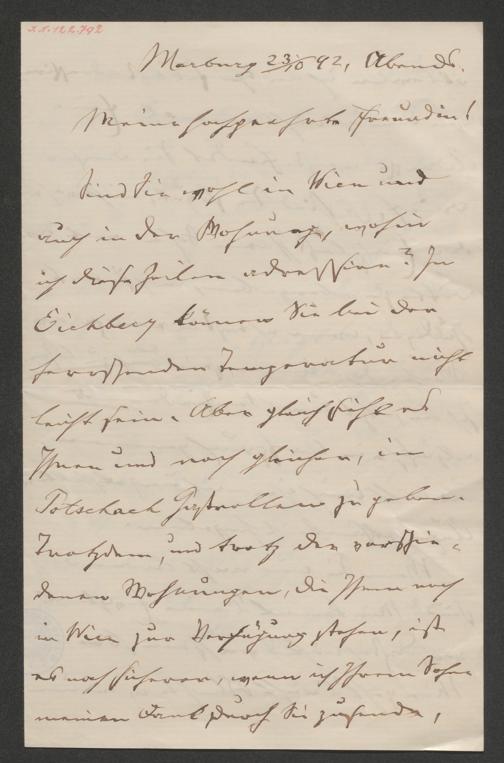 I.N. 122.792
Marburg 23/10 92, Abends.
Meine hochgeehrte Freundin!
Sind Sie wohl in Wien und
auch in der Wohnung, wohin
ich diese Zeilen adressire? In
Eichberg können Sie bei der
herrschenden Temperatur nicht
leicht sein. Aber gleich sieht es
Ihnen und noch gleicher, in
Potschach zu geben.
Trotzdem, und trotz der verschie-
denen Wohnungen, die Ihnen noch
in Wien zur Verfügung stehen, ist
es noch sicherer, wenn ich Ihrem Sohne
meinen Dank durch Sie zusende,